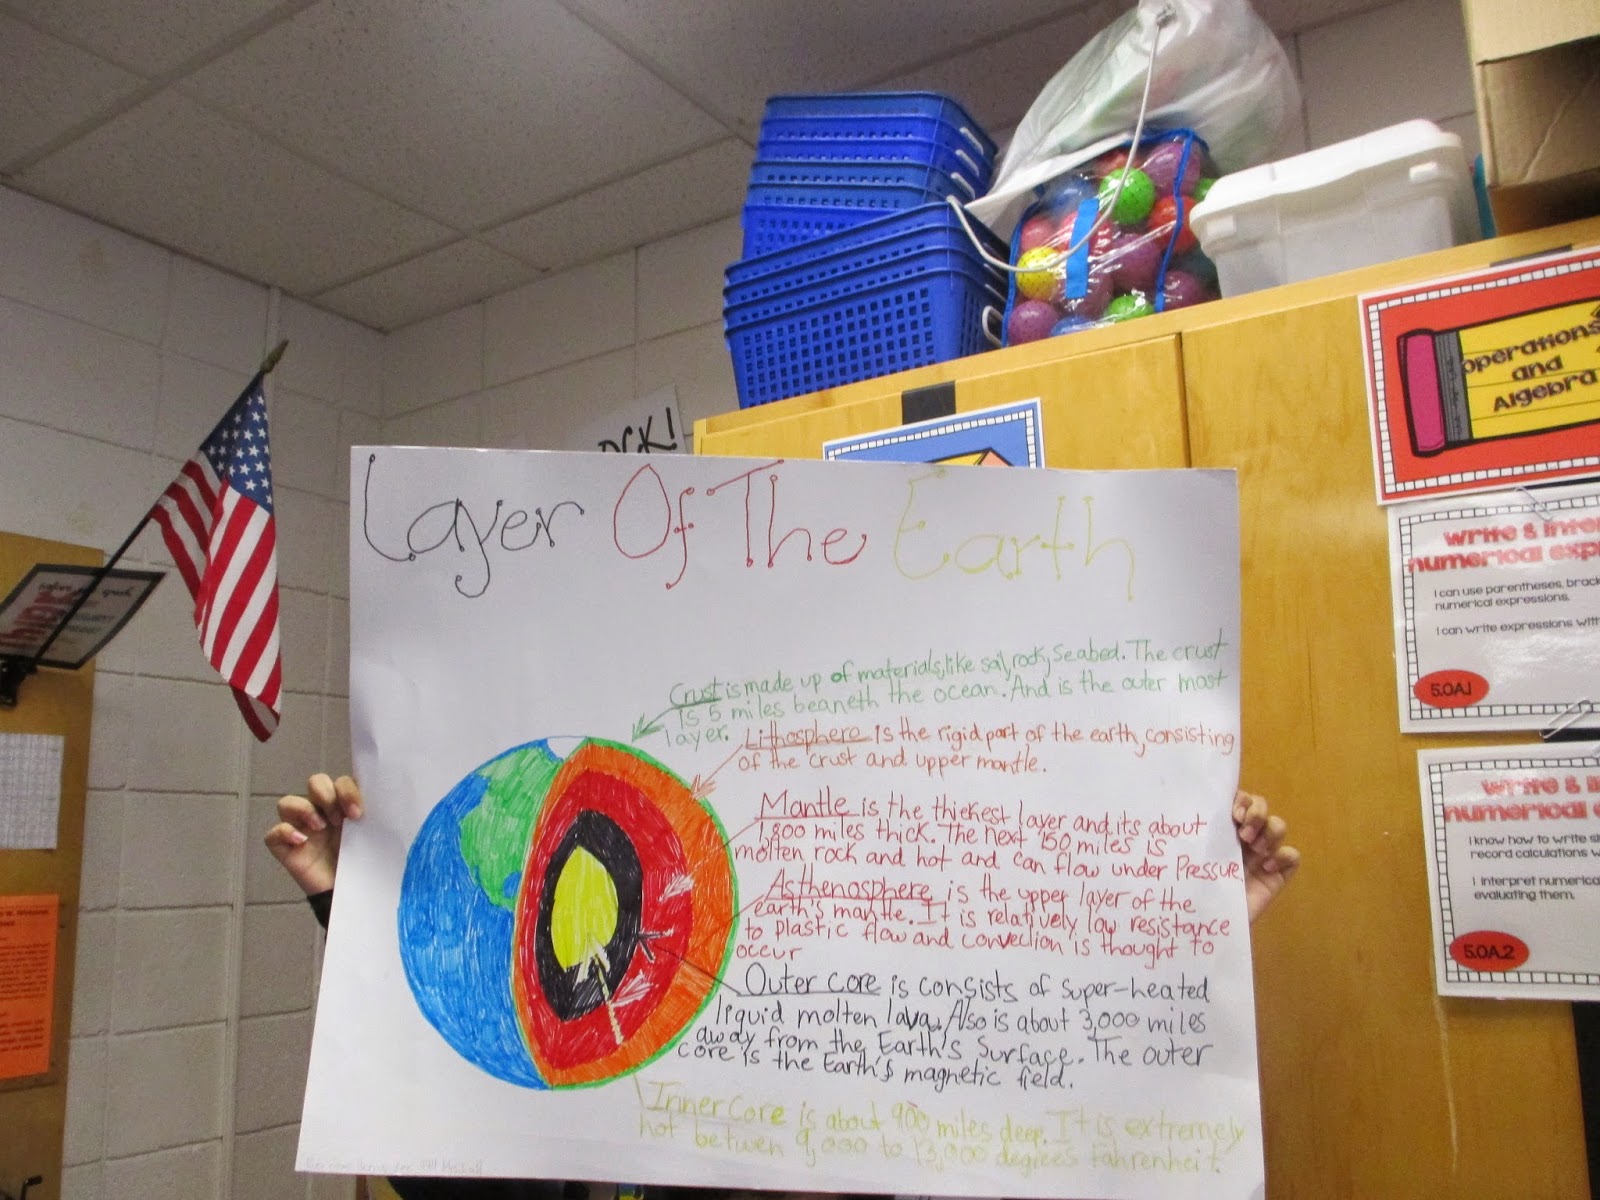 ock!
Layer Of The Earth
Crust is made up of materials, like soil, rock, seabed. The crust
is 5 miles beaneth the ocean. And is the outer most
layer.
Lithosphere is the rigid part of the earth, consisting
of the crust and upper mantle.
Mantle is the thickest layer and its about
1,800 miles thick. The next 150 miles is
molten rock and hot and can flow under Pressure.
Asthenosphere is the upper layer of the
earth's mantle. It is relatively low resistance
to plastic flow and convection is thought to
occur
Outer core is consists of super-heated
liquid molten lava. Also is about 3,000 miles
away from the Earth's Surface. The outer
core is the Earth's magnetic field.
Inner core is about 900 miles deep. It is extremely
hot betwen 9,000 to 13,000 degrees fahrenheit.
operations
and
Algebra
write & inter
numerical exp
I can use parentheses, brack
numerical expressions.
I can write expressions with
5.OA.1
write & i
numerical
I know how to write si
record calculations w
I interpret numerical
evaluating them.
5.OA.2